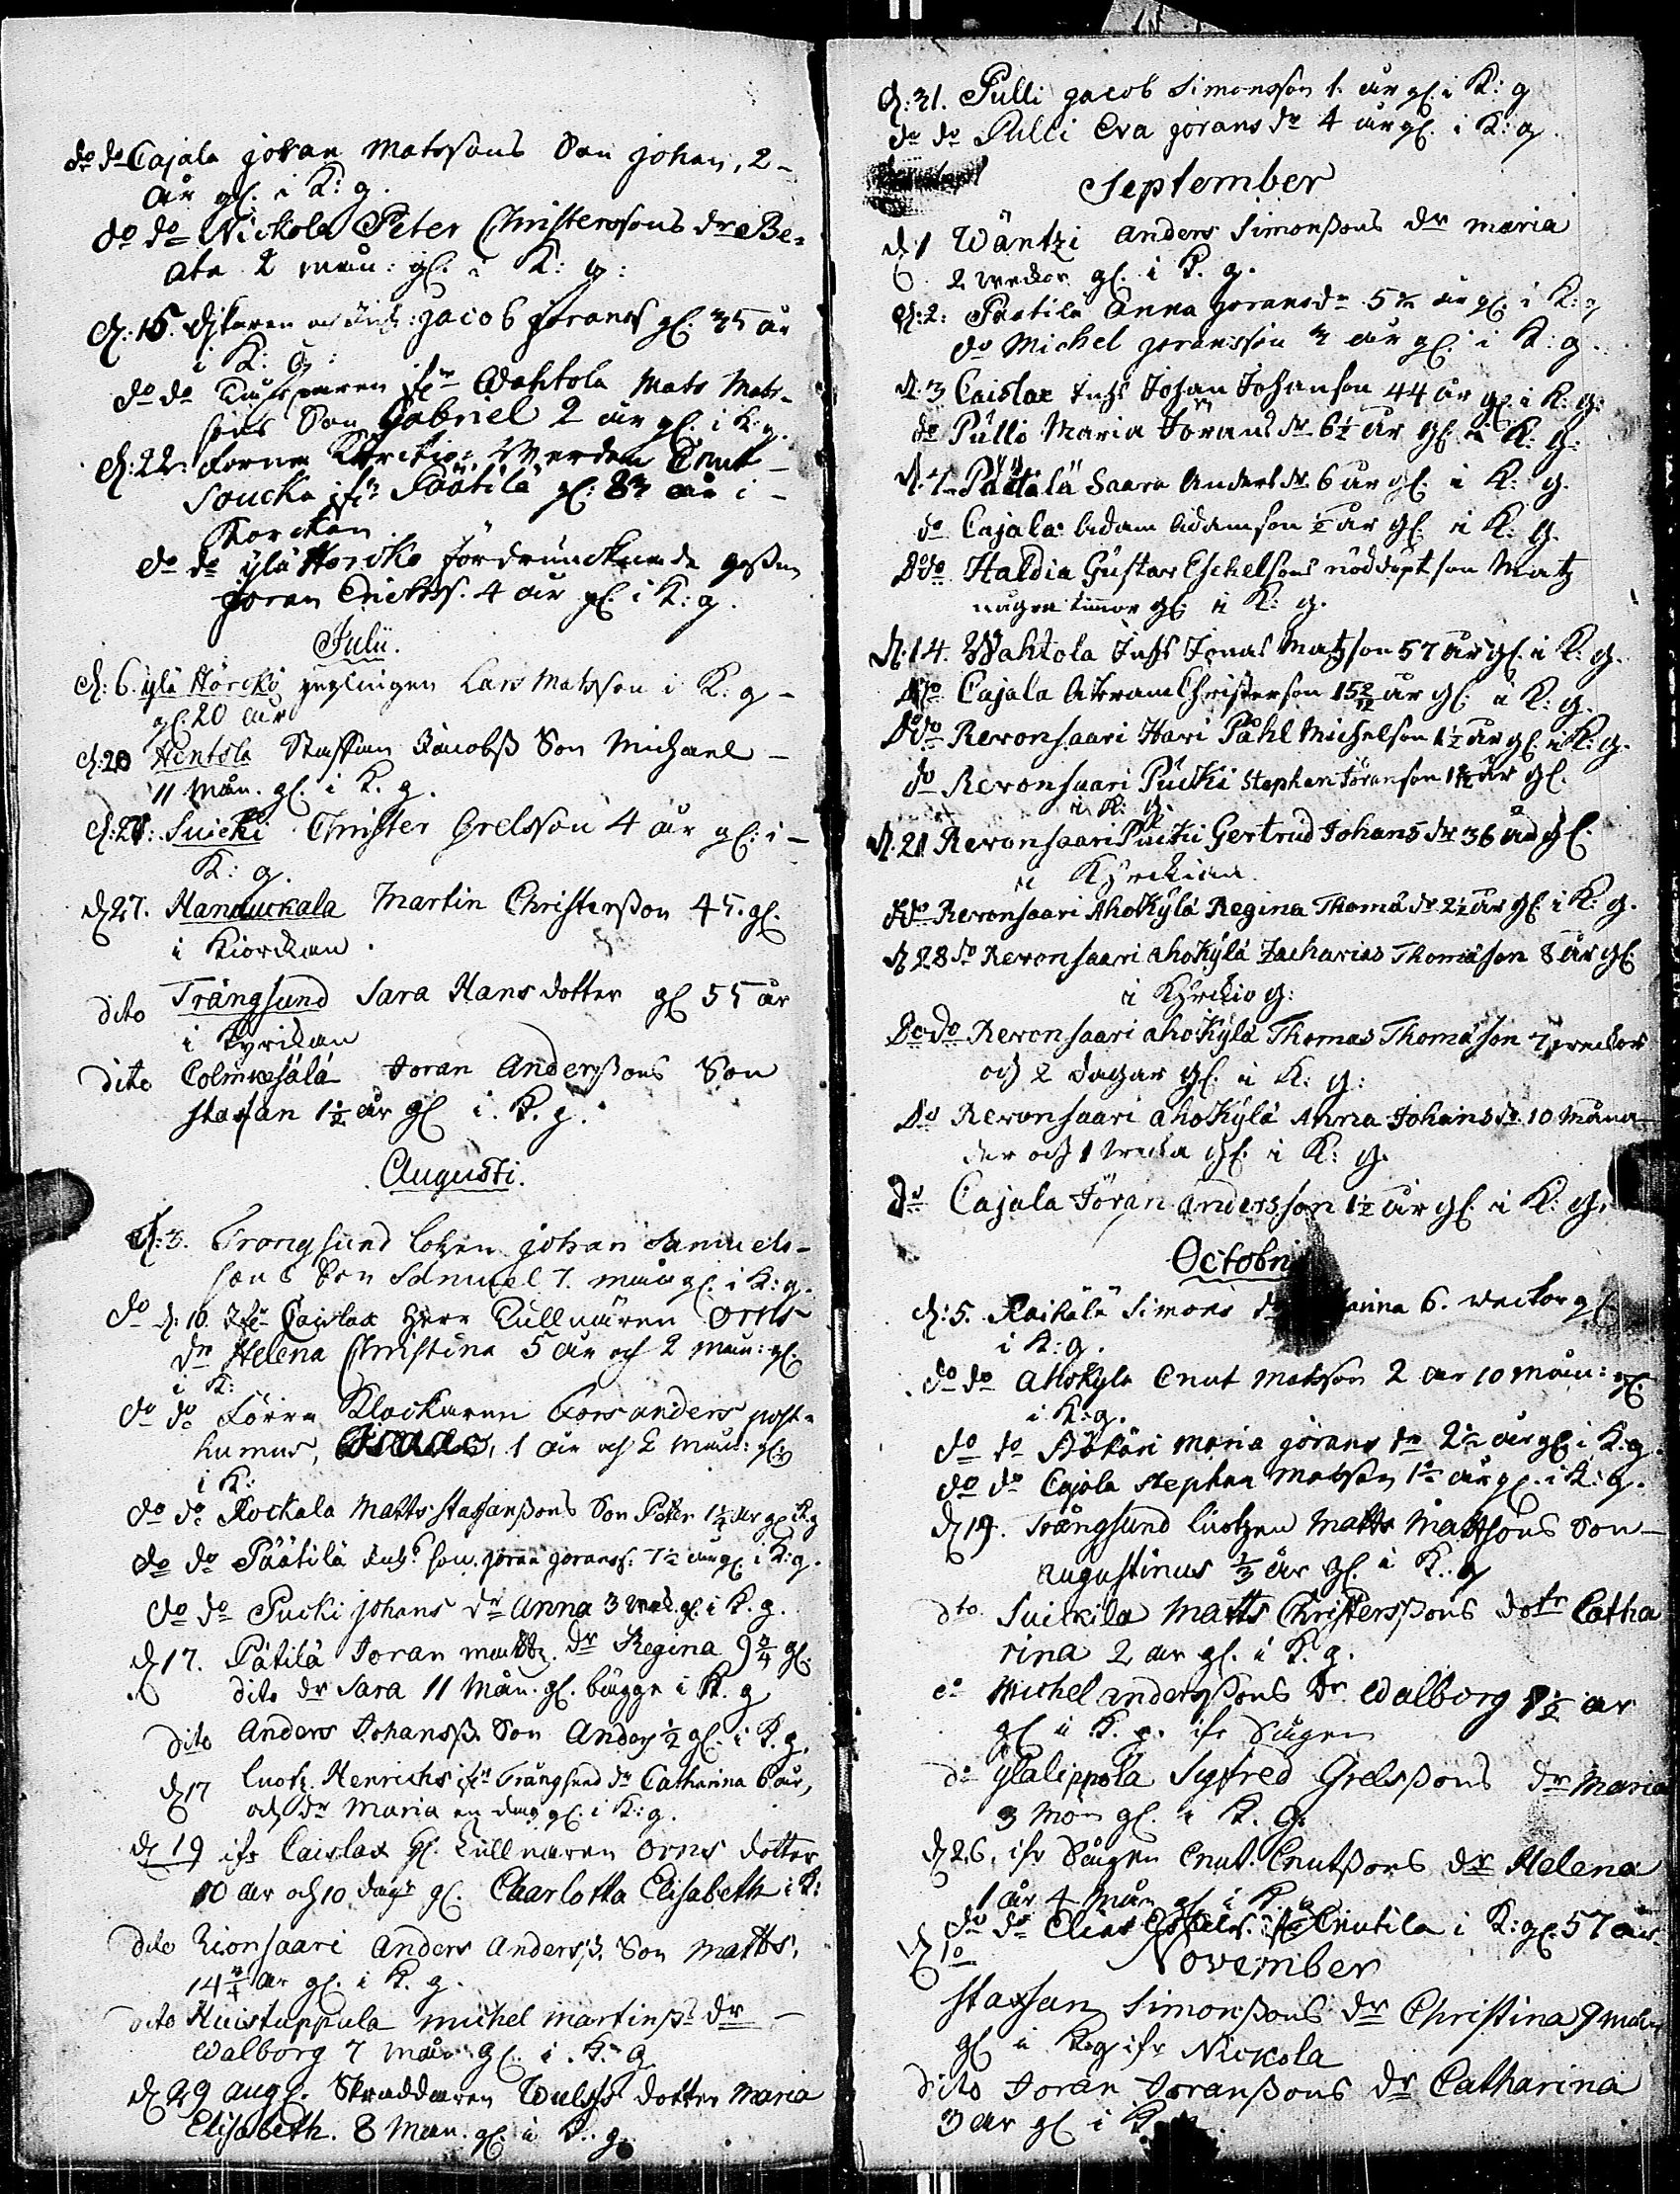 do do Cajala johan Matssons Son johan, 2-
år gl. i K: g.
do do Nickola Peter Christerssons dr Be-
ata 2 mån: gl. i K: g:
d: 15. och Inh: jacob jörans gl. 35 år
i K: G:
do do ifr Wahtola Mats Mats-
sons Son Gabriel 2 år gl. i K: g.
d: 22: Forne Werden Cnut
Soucka ifr Päätilä gl: 83 år i -
Korckan
do do ylä Hörckö fördruncknade gossen
jöran Erichss. 4 år gl. i K: g.
Julii.
d: 6. ylä Hörckö ynglingen Lars Matsson i K: g -
gl. 20 år
d: 20 Hentola Staffan Jacobss Son Michael -
11 mån. gl. i K. g.
d: 21: Suicki Christer Grelsson 4 år gl: i -
K: g.
d 27. Hannuckala Martin Christersson 45. gl.
i Kiorckan.
dito Trångsund Sara Hans dotter gl 55 år
i Kyrckan
dito Colmkesälä Joran Anderssons Son
staffan 1½ år gl i. K. g.
Augusti.
d: 3. Trongsund lotzen johan Samuels-
sons Son Samuel 7. mån gl. i K: g.
do d: 10. ifr Caislax Herr Tullnären Orns
dr Helena Christina 5 år och 2 mån: gl.
i K:
do do Förra Klockaren Fors anders post-
humus, Isaac, 1 år och 2 mån: gl:
i K:
do do Kockala Matts staffanssons Son Peter 1¼ år gl i K g
do do Päätilä Inhs son. jöran jöranss. 7½ år gl. i K: g.
do do Pucki johans dr Anna 3 wek. gl. i K. g.
d 17. Pätilä Joran mattz. dr Regina 9¾ gl.
dito dr Sara 11 Mån. gl. bägge i K. g
dito Anders Johanss. Son Anders ½ gl. i K. g.
d 17 luotz. Henrichs ifr Trångsund dr Catharina 6 år,
och dr Maria en dag gl. i K: g.
d 19 ifr Caislax gl. Tullnaren Orns dotter
10 år och 10 dagr gl. Charlotta Elisabeth i K:
dito Rionsaari Anders Anderss. Son Matts,
14¾ år gl. i K. g.
dito Huistuppula michel martinss dr -
Walborg 7 mån gl. i. K. g
d 29 aug. Skraddaren Wulffs dotter Maria
Elisabeth. 8 Mån. gl. i K. g.
d: 31. Pulli jacob Simonsson 1. år gl. i K: g
do do Pulli Eva jörans dr 4 år gl. i K: g.
September
d. 1 Wäntzi Anders Simonssons dr maria
2 weckor gl. i K. g.
d: 2: Päätilä Anna jörans dr 5 år gl. i K: g
do Michel jöransson 3 år gl. i K: g.
d. 3 Caislax Inhs Johan Johanson 44 år gl. i K: g:
do Pulli Maria Jörans dr 6½ år gl i K: g:
d. 7. Päätälä Saara Anders dr 6 år gl. i K: g.
do Cajala Adam Adamson ½ år gl. i K: g.
Dodo Haldia Gustav Eschelsons nöddöpt son Matz
några timmar gl. i K: g.
d. 14. Wahtola Inhs Jonas Matzson 57 år gl. i K: g.
Dodo Cajala Abram Christerson 15 2/12 år gl. i K: g.
Dodo Revonsaari Hari Påhl Michelson 1½ år gl. i K: g.
do Revonsaari Pucki Stephan Jöranson år gl.
i K: g.
d. 21 Revonsaari Pucki Gertrud Johans dr 36 år gl.
i Kyrckian.
dodo Revonsaari Ahokylä Regina Thomä dr 2½ år gl. i K: g.
d 28 do Revonsaari ahokylä Zacharias Thomäson 8 år gl.
i Kyrckio g:
Dodo Revonsaari ahokylä Thomas Thomäson 7 weckor
och 2 dagar gl. i K: g:
do Revonsaari ahokylä Anna Johans dr 10 Måna-
der och 1 wecka gl. i K: g.
do Cajala Jöran Andersson 1½ år gl. i K: g.
Octobri
d: 5. Raikälä Simons 6. weckor gl.
i K: g.
do do Ahokyla Cnut Matsson 2 år 10 mån: gl:
i K: g.
do do Maria jörans dr 2½ år gl. i K: g.
do do Cajola Stephan Matsson 1½ år gl. i K: g.
d 19. Trångsund luotzen Matts Mattsons Son -
Augustinus ⅓ år gl. i K. g
dto. Suickila Matts Christerssons dotr Catha
rina 2 år gl. i K. g.
do Michel Anderssons dr Walborg 8½ år
gl i K. g. ifr Sågen
do ylälippola Sigfred Grelssons dr Maria
3 Mon gl. i K. g.
d 26, ifr Sågen Cnut. Cnutssons dr Helena
1 år 4 Mån gl. i K. g
do do Elias ifr Cnutila i K: gl. 57 år.
d 1o November
Staffan Simonssons dr Christina 9 mån
gl i K. g ifr Nickola
dito Joran Joranssons dr Catharina
3 år gl i K.